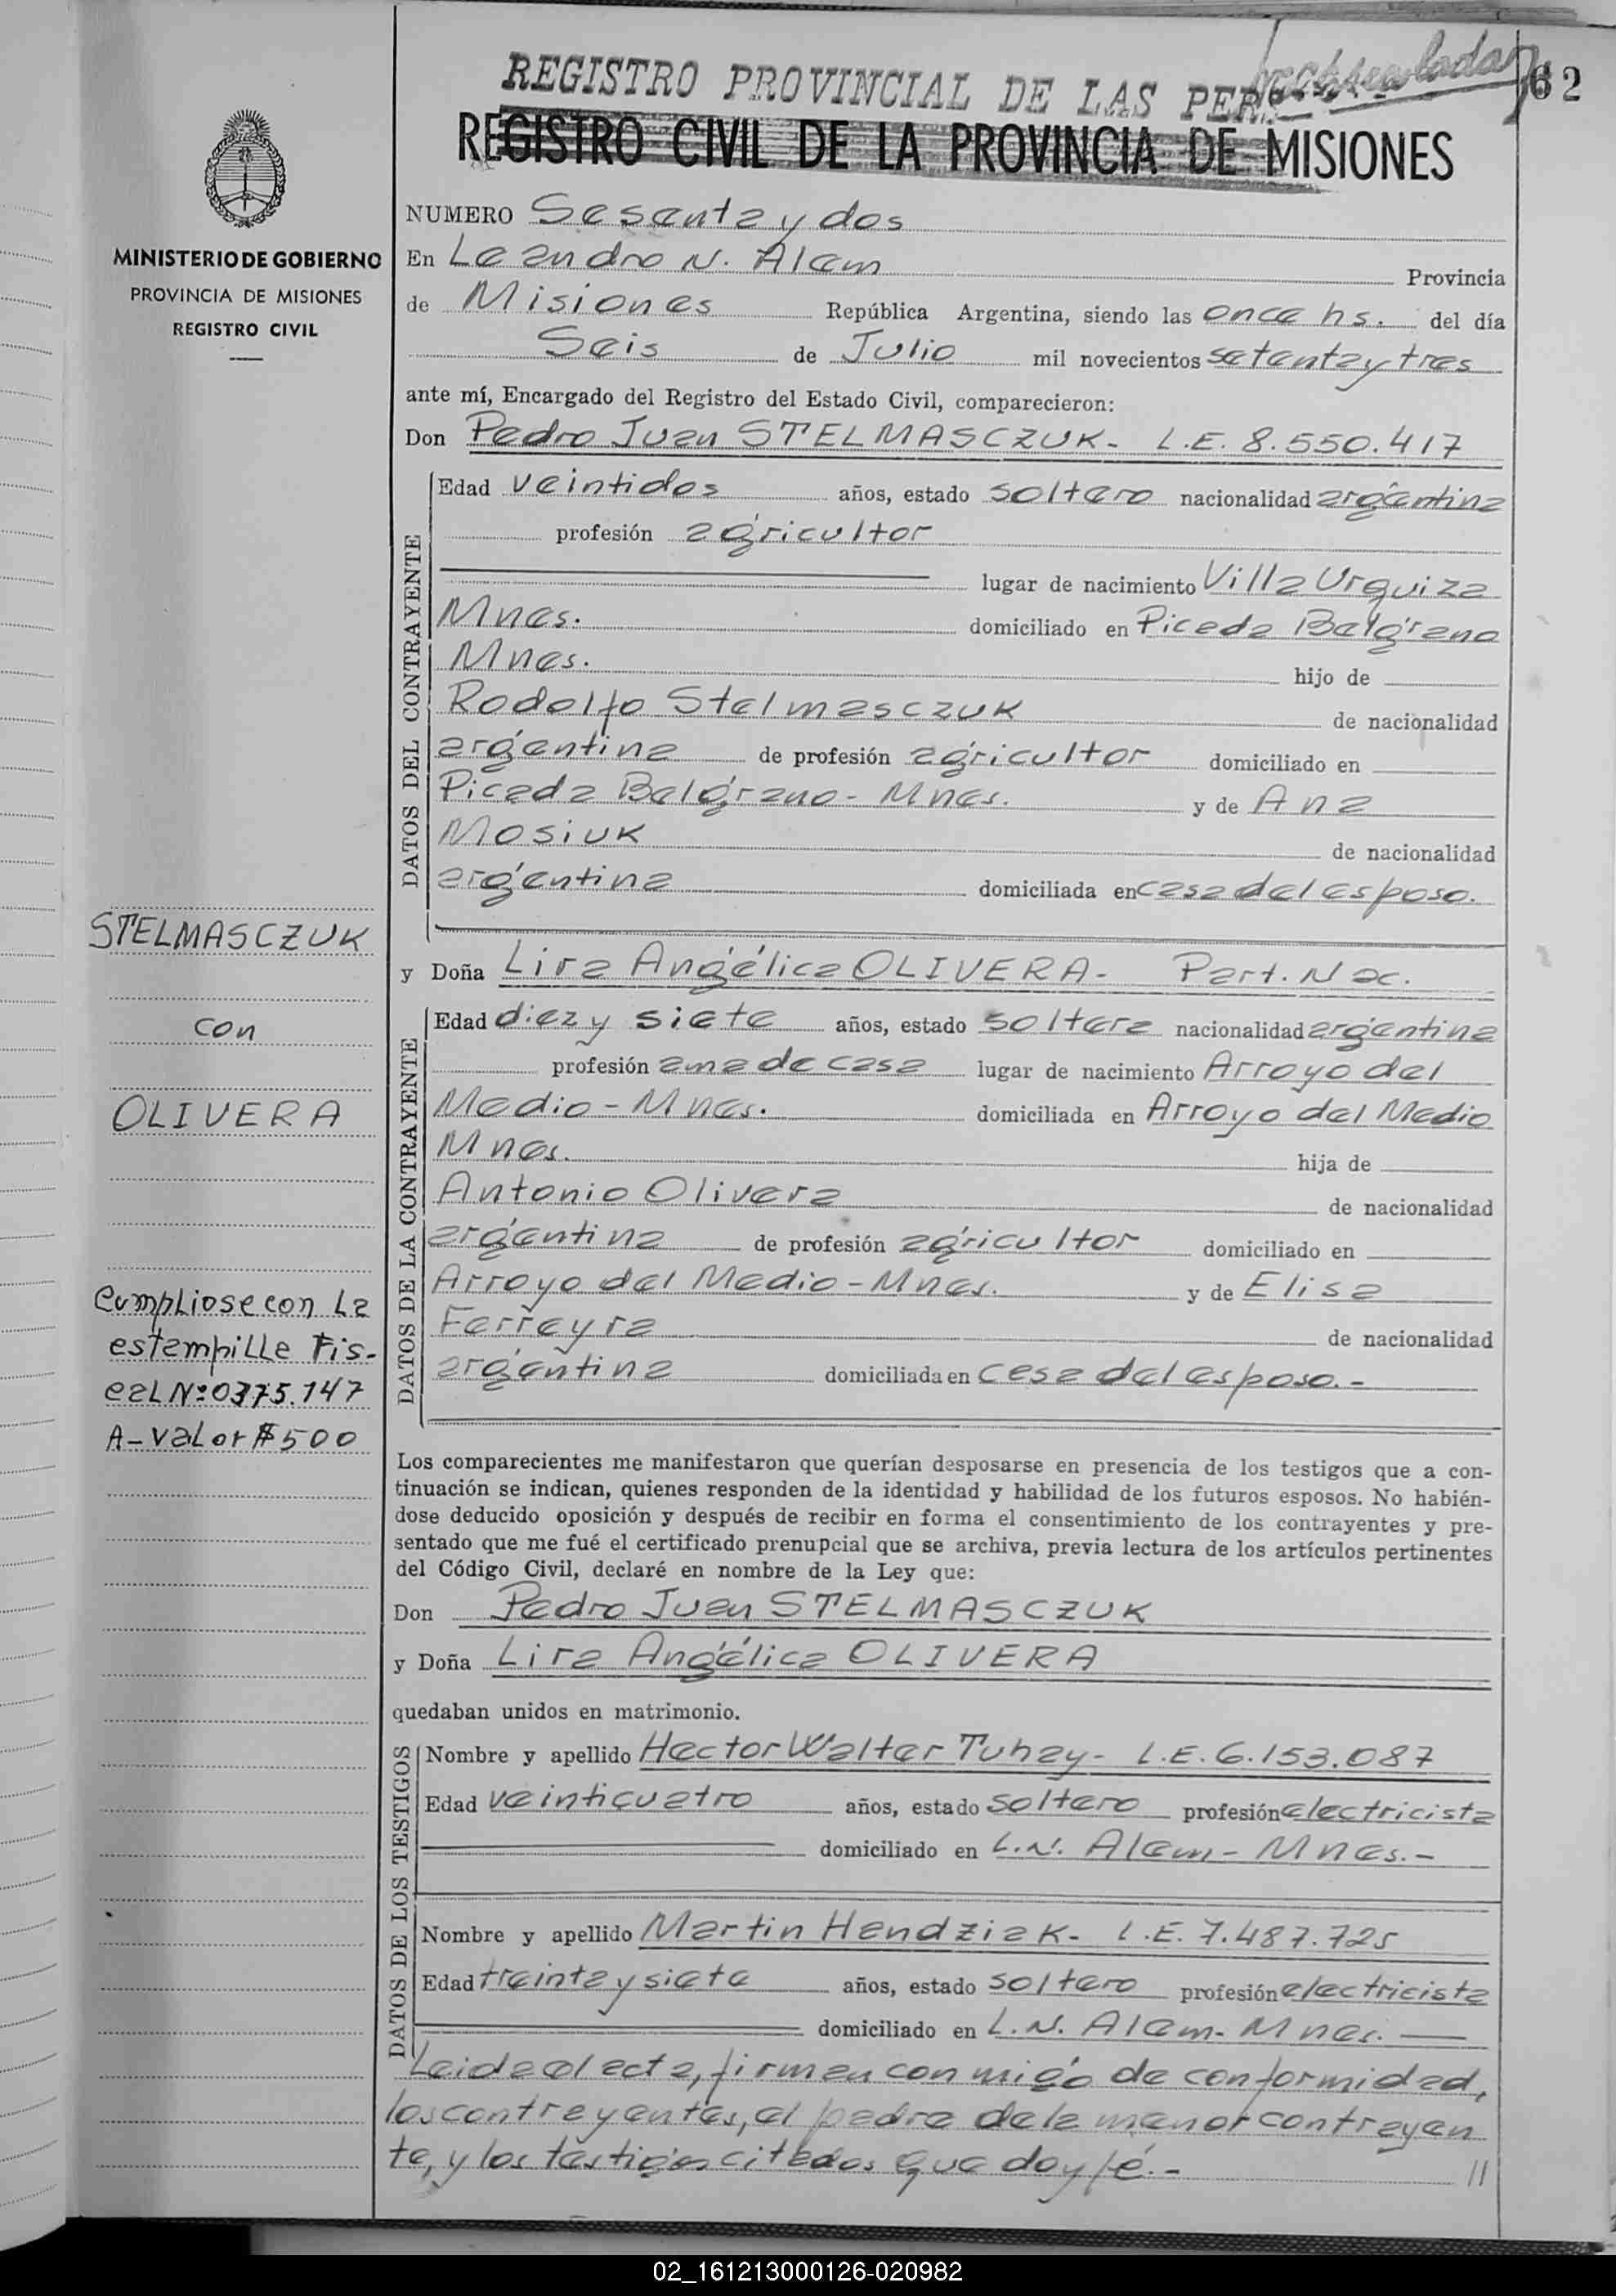 REGISTRO PROVINCIAL DE LAS PER
62
REGISTRO CIVIL DE LA PROVINCIA DE MISIONES
MINISTERIO DE GOBIERNO
PROVINCIA DE MISIONES
REGISTRO CIVIL
NUMERO Sesenta y dos
En Leandro N. Alem Provincia
de Misiones República Argentina, siendo las once hs. del día
Seis de Julio mil novecientos setenta y tres
ante mí, Encargado del Registro del Estado Civil, comparecieron:
Don Pedro Juan STELMASCZUK- L.E. 8.550.417
DATOS DEL CONTRAYENTE
Edad veintidos años, estado soltero nacionalidad argentina
profesión agricultor
lugar de nacimiento Villa Urquiza
Mnes. domiciliado en Picada Belgrano
Mnes. hijo de
Rodolfo Stelmasczuk de nacionalidad
argentina de profesión agricultor domiciliado en
Picada Belgrano - Mnes. y de Ana
Mosiuk de nacionalidad
argentina domiciliada en casa del esposo.
STELMASCZUK
con
OLIVERA
y Doña Lira Angélica OLIVERA- Part. Nac.
DATOS DE LA CONTRAYENTE
Edad diez y siete años, estado soltera nacionalidad argentina
profesión ama de casa lugar de nacimiento Arroyo del
Medio - Mnes. domiciliada en Arroyo del Medio
Mnes. hija de
Antonio Olivera de nacionalidad
argentina de profesión agricultor domiciliado en
Arroyo del Medio - Mnes. y de Elisa
Ferreyra de nacionalidad
argentina domiciliada en casa del esposo.-
Cumpliose con la
estampilla Fis-
cal Nº 0375.147
A-valor $500
Los comparecientes me manifestaron que querían desposarse en presencia de los testigos que a con-
tinuación se indican, quienes responden de la identidad y habilidad de los futuros esposos. No habién-
dose deducido oposición y después de recibir en forma el consentimiento de los contrayentes y pre-
sentado que me fué el certificado prenupcial que se archiva, previa lectura de los artículos pertinentes
del Código Civil, declaré en nombre de la Ley que:
Don Pedro Juan STELMASCZUK
y Doña Lira Angélica OLIVERA
quedaban unidos en matrimonio.
DATOS DE LOS TESTIGOS
Nombre y apellido Hector Walter Tuhay- L.E. 6.153.087
Edad veinticuatro años, estado soltero profesión electricista
domiciliado en L.N. Alem - Mnes.-
Nombre y apellido Martin Hendziak- L.E. 7.487.725
Edad treinta y siete años, estado soltero profesión electricista
domiciliado en L.N. Alem- Mnes.
Leida el acta, firman con migo de conformidad,
los contrayentes, el padre de la menor contrayen
te, y los testigos citados que doy fé.- //
02_161213000126-020982